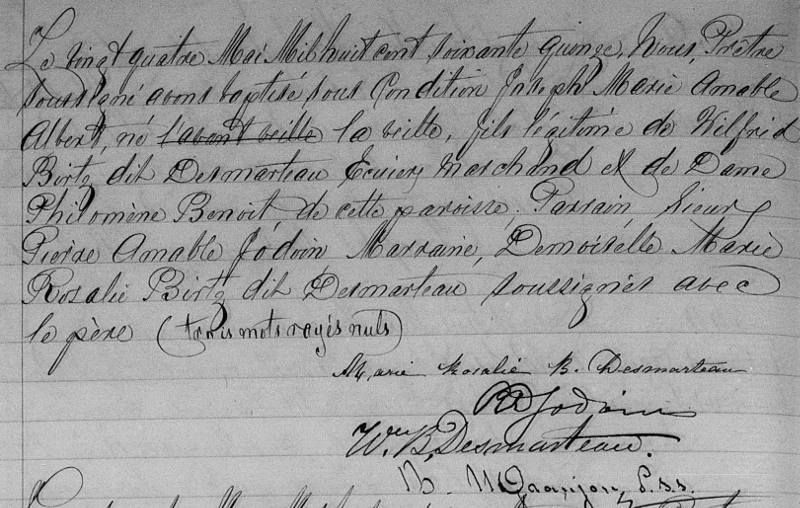 Le vingt quatre Mai Mil huit cent soixante quinze, Nous, Prêtre
soussigné avons baptisé sous Condition Joseph Marie Amable
Albert, né l'avant veille la veille, fils légitime de Wilfrid
Birtz dit Desmarteau Ecuier, Marchand et de Dame
Philomène Benoit, de cette paroisse. Parrain, Sieur
Pierre Amable Jodoin Marraine, Demoiselle Marie
Rosalie Birtz dit Desmarteau soussignés avec
le père (trois mots rayés nuls)
Marie Rosalie B. Desmarteau
Jodoin
Wm. B. Desmarteau.
P.S.S.